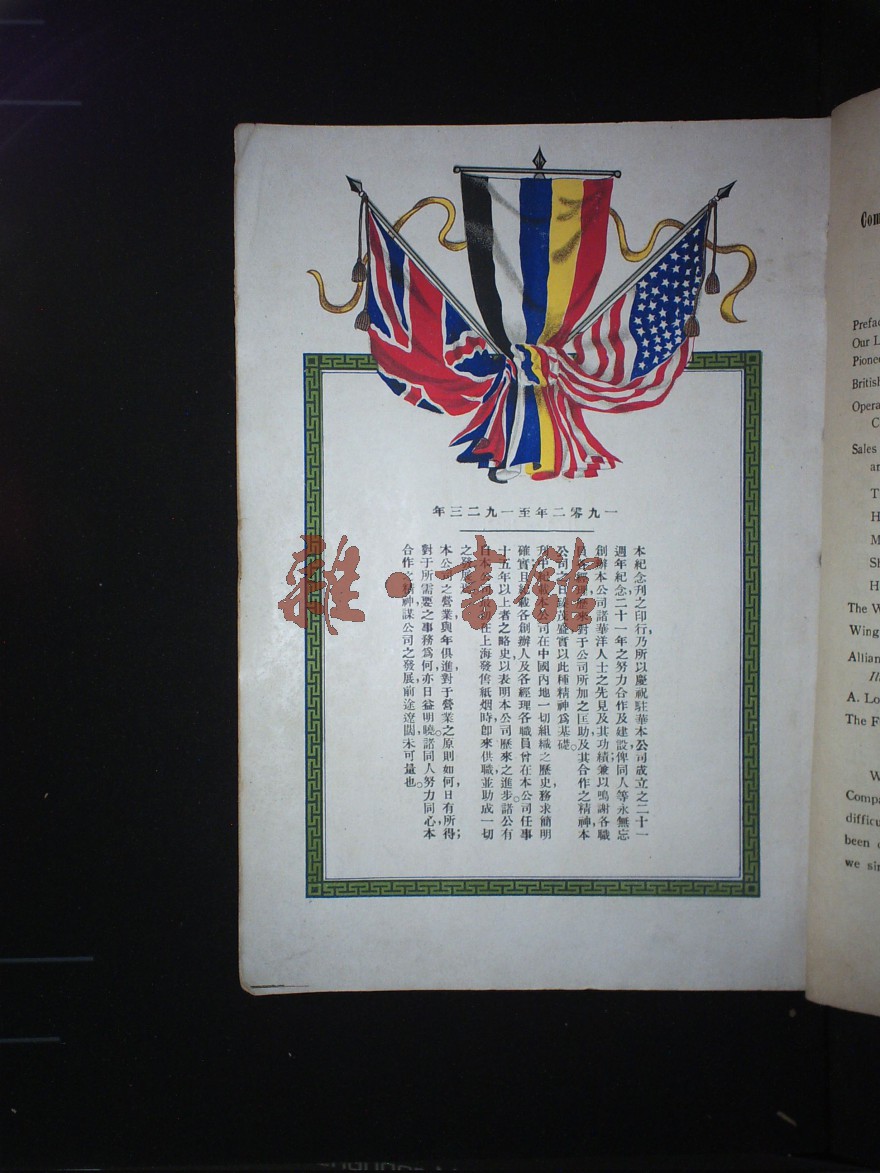 一九零二年至一九二三年
本紀念刊之印行,乃所以慶祝駐華本公司成立之二十一
週年紀念二十一年之努力合作及建設俾同人等永無忘
創辦本公司諸華洋人士之先見及其功績;兼以鳴謝各職
歷來對于公司所加之匡助及其合作之精神,本
公司之日臻茂盛實以此種精神爲基礎。
刊中記載本公司在中國內地一切組織之歷史,務求簡明
確實且記載各創辦人及各經理各職員曾在本公司任事
十五年以上者之略史,以表明本公司歷來之進步。諸公有
自本公司最初在上海發售紙烟時,卽來供職,並助成一切
之發展者。
本公司之營業與年俱進,對于營業之原則如何,日有所得;
對于所需要之事務爲何,亦日益明曉。諸同人努力同心,本
合作之精神,謀公司之發展,前途遼闊,未可量也。
雜·書館
Com
Prefac
Our L
Pionee
British
Opera
C
Sales
ar
T
H
M
Sh
H
The W
Wing
Allian
Il
A. Lo
The F
W
Compa
difficu
been
we sin